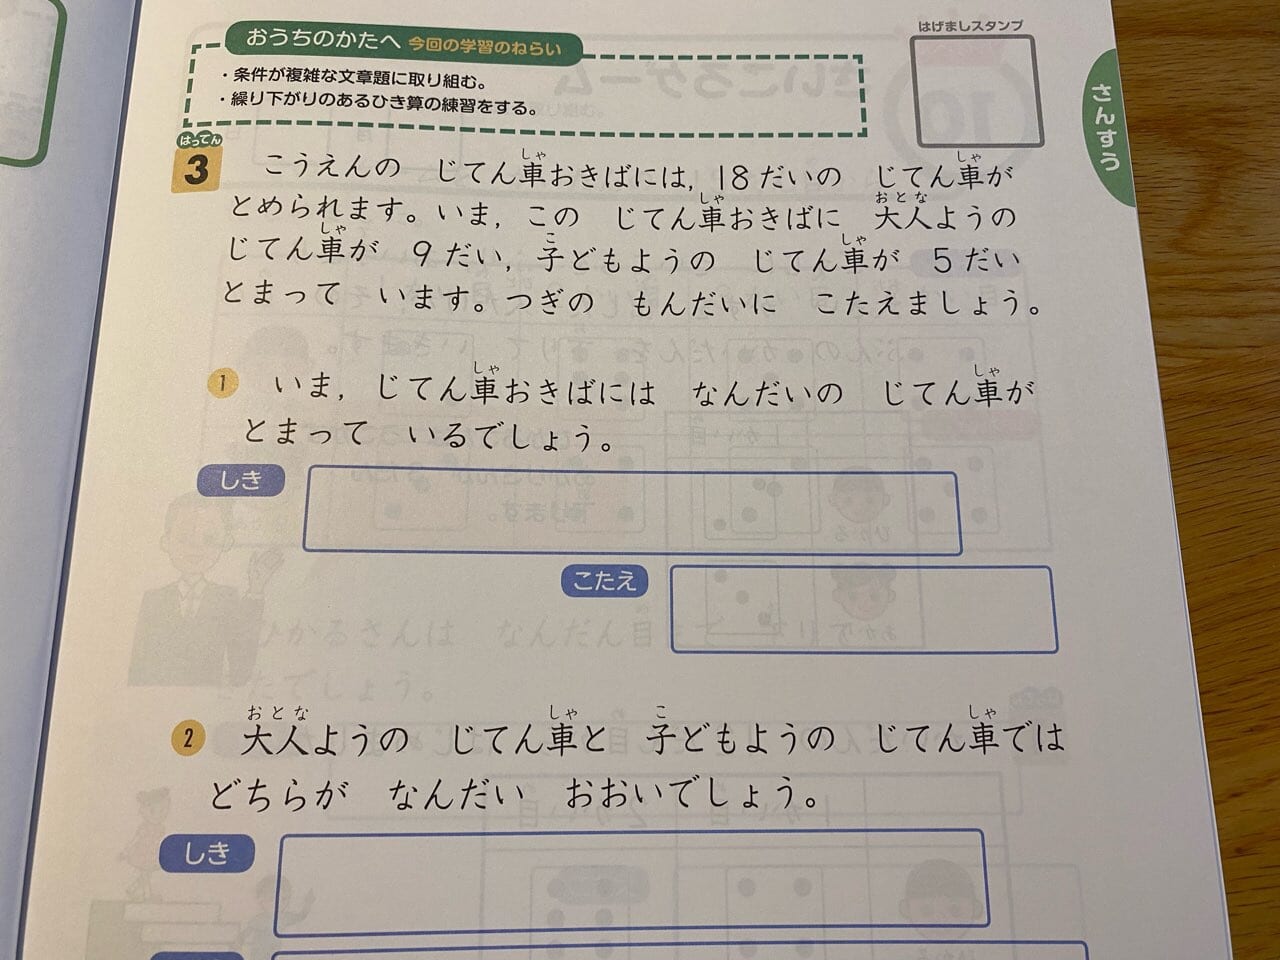 おうちのかたへ 今回の学習のねらい
・条件が複雑な文章題に取り組む。
・繰り下がりのあるひき算の練習をする。
はげましスタンプ
さんすう
はってん
3
こうえんの じてん車おきばには，18だいの じてん車が
とめられます。いま，この じてん車おきばに 大人ようの
じてん車が 9だい，子どもようの じてん車が 5だい
とまって います。つぎの もんだいに こたえましょう。
1 いま，じてん車おきばには なんだいの じてん車が
とまって いるでしょう。
しき
こたえ
2 大人ようの じてん車と 子どもようの じてん車では
どちらが なんだい おおいでしょう。
しき